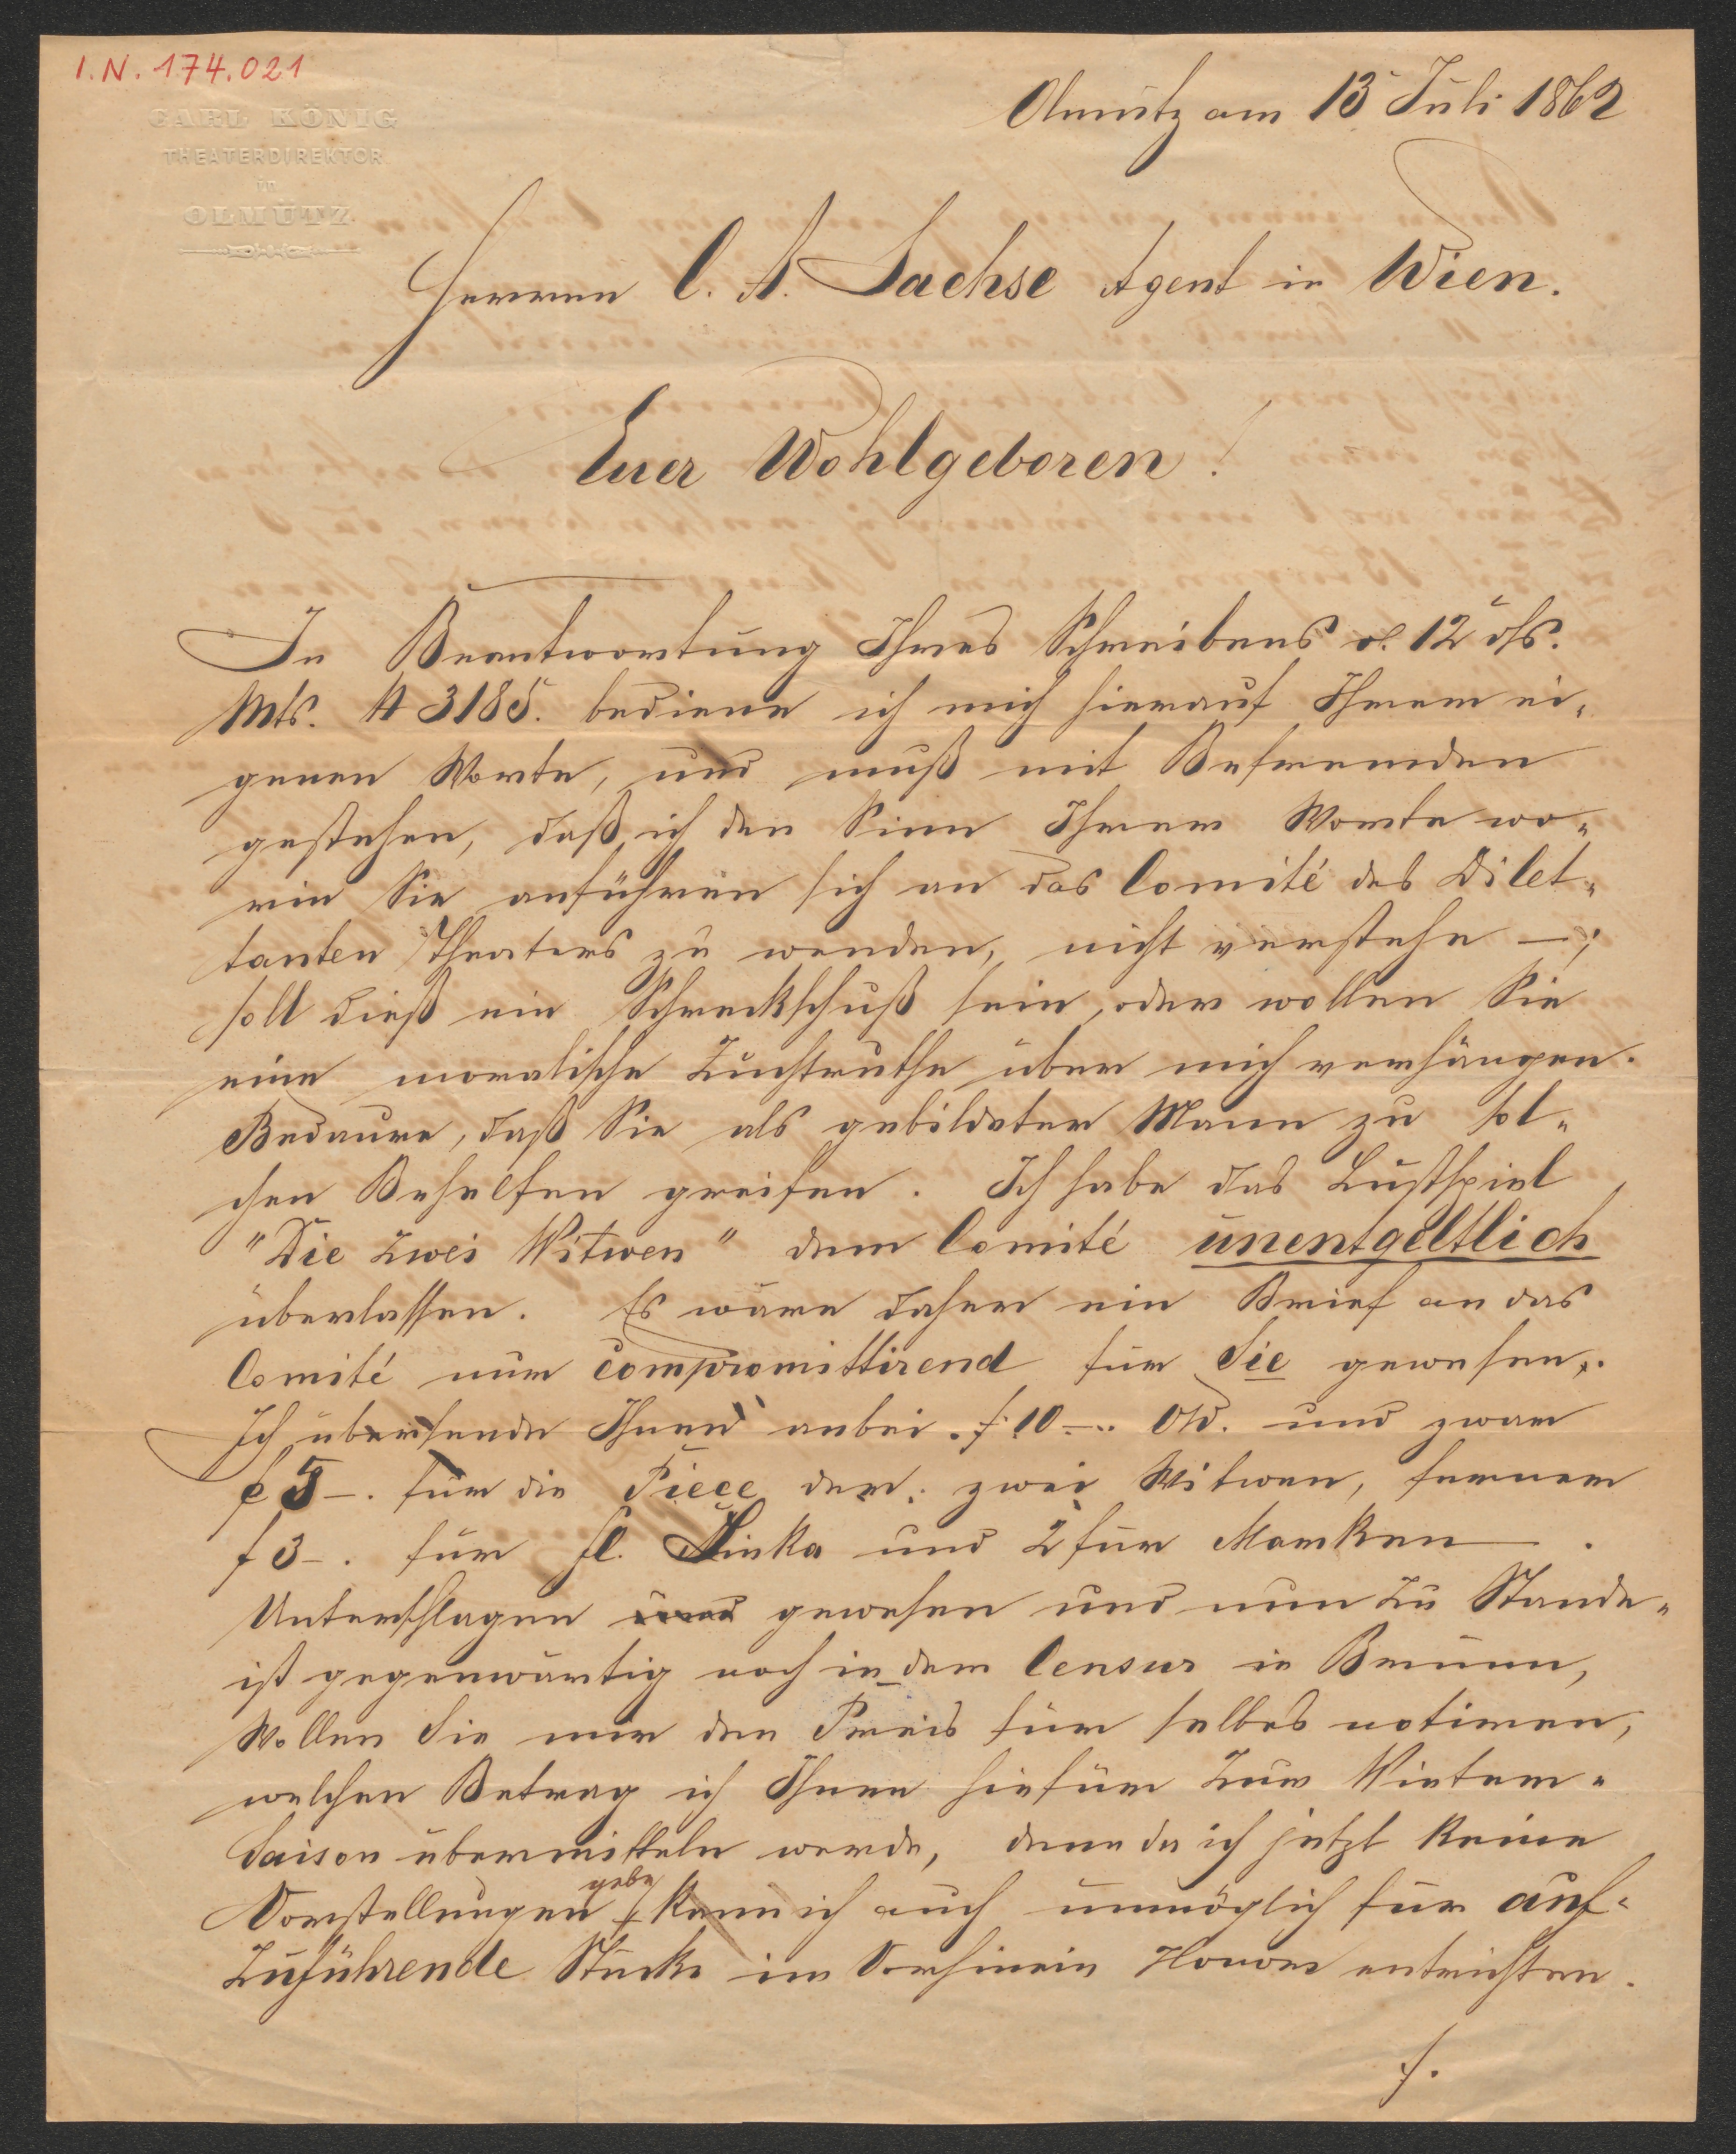 I.N. 174.021
CARL KÖNIG
THEATERDIREKTOR
in
OLMÜTZ
Olmütz am 13 Juli 1862
Herren C. A. Sachse Agent in Wien.
Euer Wohlgeboren!
In Beantwortung Ihres Schreibens v. 12 ds.
Mts. A 3185. bediene ich mich hierauf Ihrem ei„
genen Worte, und muß mit Befremden
gestehen, daß ich den Sinn Ihrer Worte wo„
rin Sie anführen sich an das Comité des Dilet„
tanten Theaters zu wenden, nicht verstehe —;
soll dieß ein Schreckschuß sein, oder wollen Sie
eine moralische Zuchtruthe über mich verhängen.
Bedaure, daß Sie als gebildeter Mann zu sol„
chen Behelfen greifen. Ich habe das Lustspiel
"Die zwei Witwen" dem Comité unentgeltlich
überlassen. Es wäre daher ein Brief an das
Comité nur compromittirend für Sie gewesen.
Ich übersende Ihnen anbei f. 10 —. ÖW. und zwar
f 5 —. für die Piece der: zwei Witwen, ferner
f 3 —. für fl. und 2 für Marken — .
Unterschlagen gewesen und nun zu Stande„
ist gegenwärtig noch in der Censur in Brünn,
Wollen Sie mir den Preis für selbes notiren,
welchen Betrag ich Ihnen hiefür zur Winter„
Saison übermitteln werde, denn da ich jetzt keine
Vorstellungen gebe kann ich auch unmöglich für auf„
zuführende Stücke im Vorhinein Honorar entrichten.